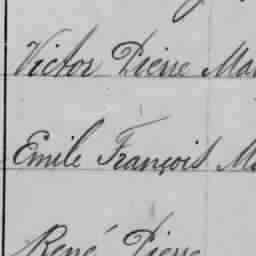 Victor Pierre Ma
Emile François M
René Pierre